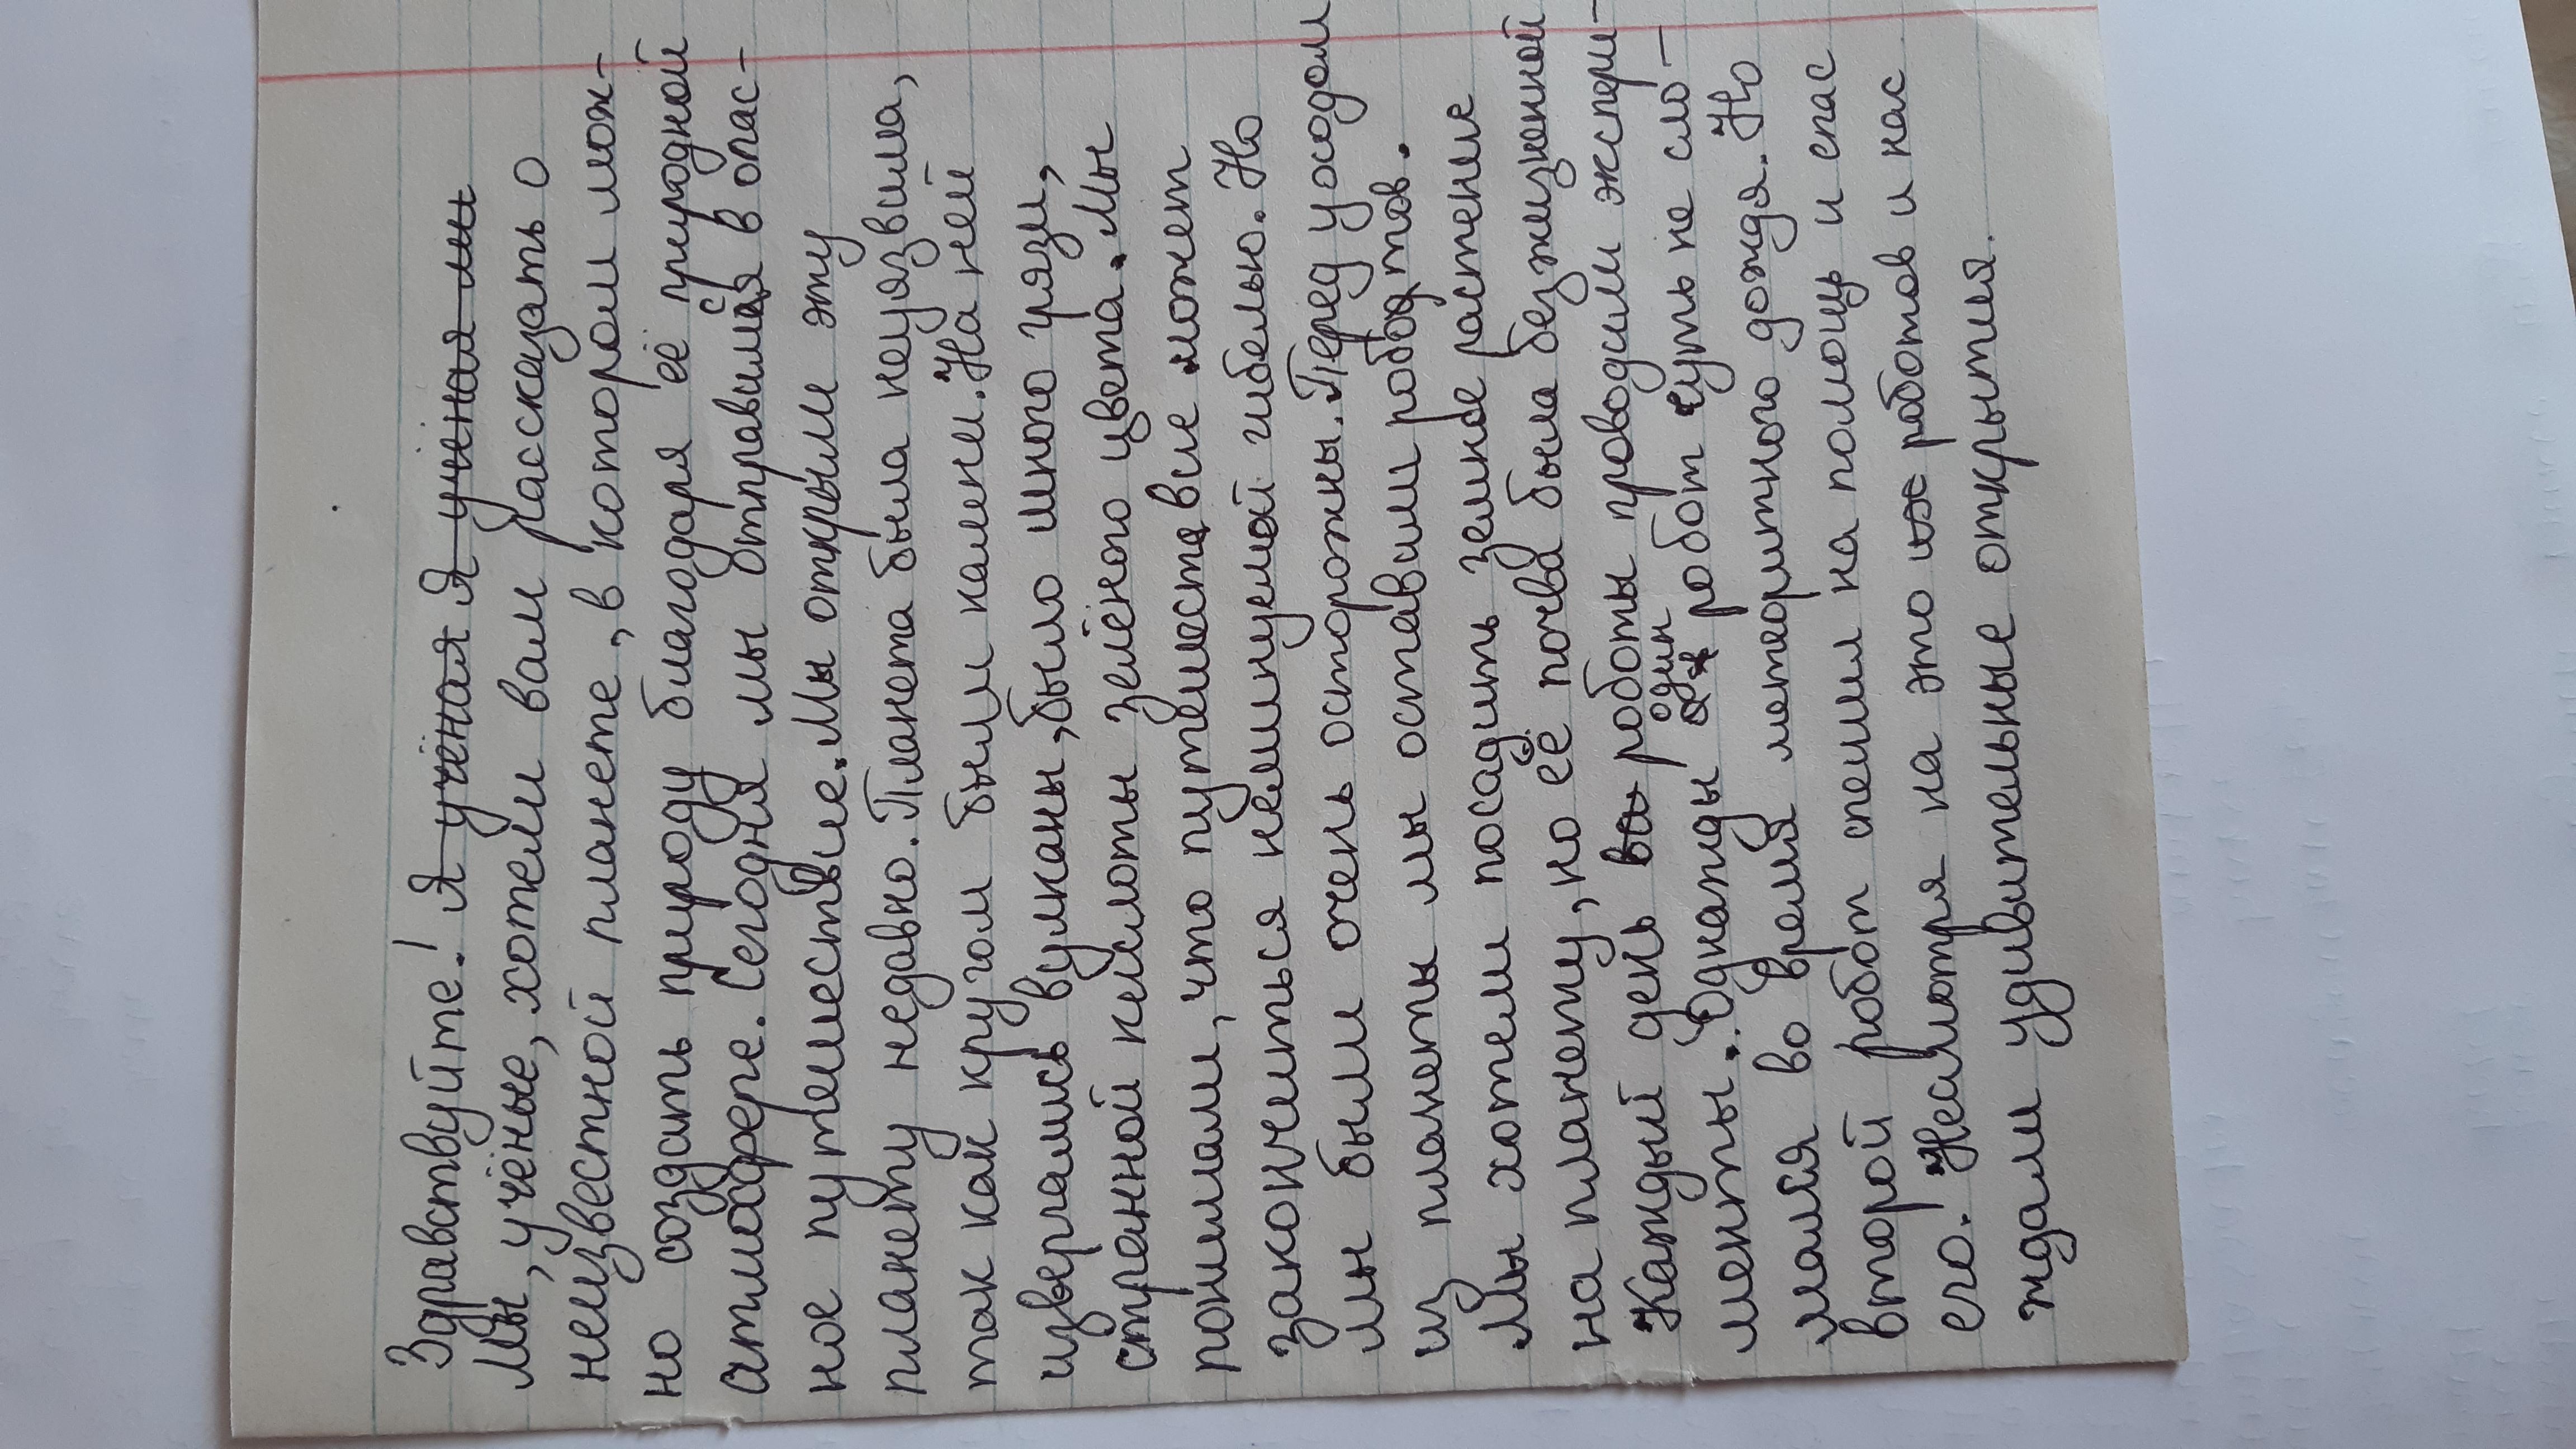 Здравствуйте! Я учёная Я учёная ли
Мы, учёные, хотели вам рассказать о
неизвестной планете, в котором мож-
но создать природу благодаря её природной
атмосфере. Сегодня мы отправимся в опас-
ное путешествие. Мы открыли эту
планету недавно. Планета была неуязвима,
так как кругом были камни. На ней
извергались вулканы, было много грязи,
странной кислоты зелёного цвета. Мы
понимали, что путешествие может
закончиться неминуемой гибелью. Но
мы были очень осторожны. Перед уходом
из планеты мы оставили роботов.
Мы хотели посадить земное растение
на планету, но её почва была безжизненной
Каждый день роботы проводили экспери-
менты. Однажды один робот чуть не сло-
мался во время метеоритного дождя. Но
второй робот спешил на помощь и спас
его. Несмотря на это роботов и нас
ждали удивительные открытия.